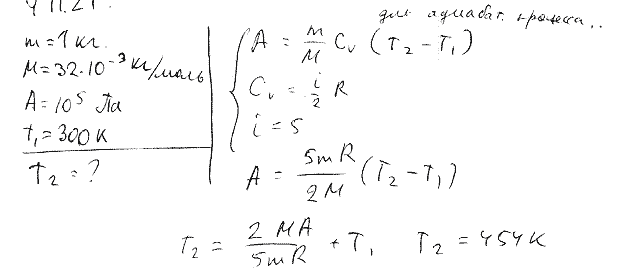 4 11.21.
для адиабат. процесса..
m = 1 кг.
M = 32·10⁻³ кг/моль
A = 10⁵ Па
t₁ = 300 K
T₂ = ?
A = m/M Cᵥ (T₂ - T₁)
Cᵥ = i/2 R
i = 5
A = 5mR/2M (T₂ - T₁)
T₂ = 2MA/5mR + T₁ T₂ = 454 K